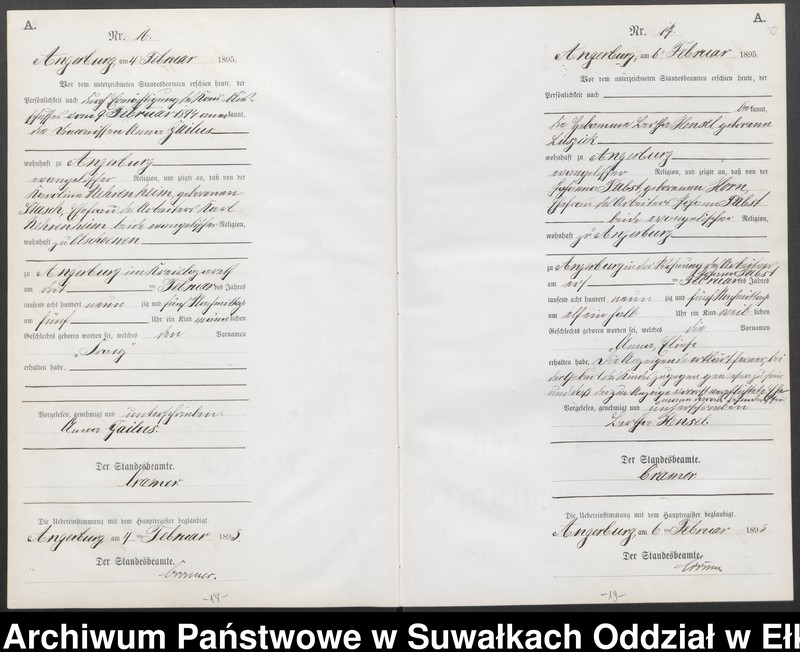 A.
Nr. 16.
Angerburg am 4. Februar 1895.
Vor dem unterzeichneten Standesbeamten erschien heute, der
Persönlichkeit nach
vom 9 Februar 1894 anerkannt,
die Anna Gailus
wohnhaft zu Angerburg
evangelischer Religion, und zeigte an, daß von der
Karoline Wehrenheim, geborenen
Ehefrau des Arbeiters Karl
Wehrenheim beide evangelischer Religion,
wohnhaft zu
zu Angerburg im
am ten Februar des Jahres
tausend acht hundert neun zig und fünf Nachmittags
um fünf Uhr ein Kind männlichen
Geschlechts geboren worden sei, welches den Vornamen
"Franz"
erhalten habe.
Vorgelesen, genehmigt und unterschrieben.
Anna Gailus.
Der Standesbeamte.
Cramer
Die Uebereinstimmung mit dem Hauptregister beglaubigt.
Angerburg am 4. ten Februar 1895.
Der Standesbeamte.
Cramer.
-18-
A.
Nr. 17.
Angerburg, am 6. Februar 1895.
Vor dem unterzeichneten Standesbeamten erschien heute, der
Persönlichkeit nach
bekannt,
die Hebamme Bertha Hensel geborene
wohnhaft zu Angerburg
evangelischer Religion, und zeigte an, daß von der
Johanna Pabst, geborenen Horn,
Ehefrau des Arbeiters Johann Pabst
beide evangelischer Religion,
wohnhaft zu Angerburg
zu Angerburg in der Wohnung des Arbeiters
Johann Pabst
am Februar des Jahres
tausend acht hundert neun zig und fünf Nachmittags
um elf ein halb Uhr ein Kind weiblichen
Geschlechts geboren worden sei, welches die Vornamen
"Anna,
erhalten habe. Die Anzeigende erklärt ferner, bei
der Geburt des Kindes zugegen gewesen zu sein
und daß der zur Anzeige
Vorgelesen, genehmigt und unterschrieben
Bertha Hensel.
Der Standesbeamte.
Cramer.
Die Uebereinstimmung mit dem Hauptregister beglaubigt.
Angerburg am 6 ten Februar 1895
Der Standesbeamte.
Cramer
-19-
Archiwum Państwowe w Suwałkach Oddział w Ełk